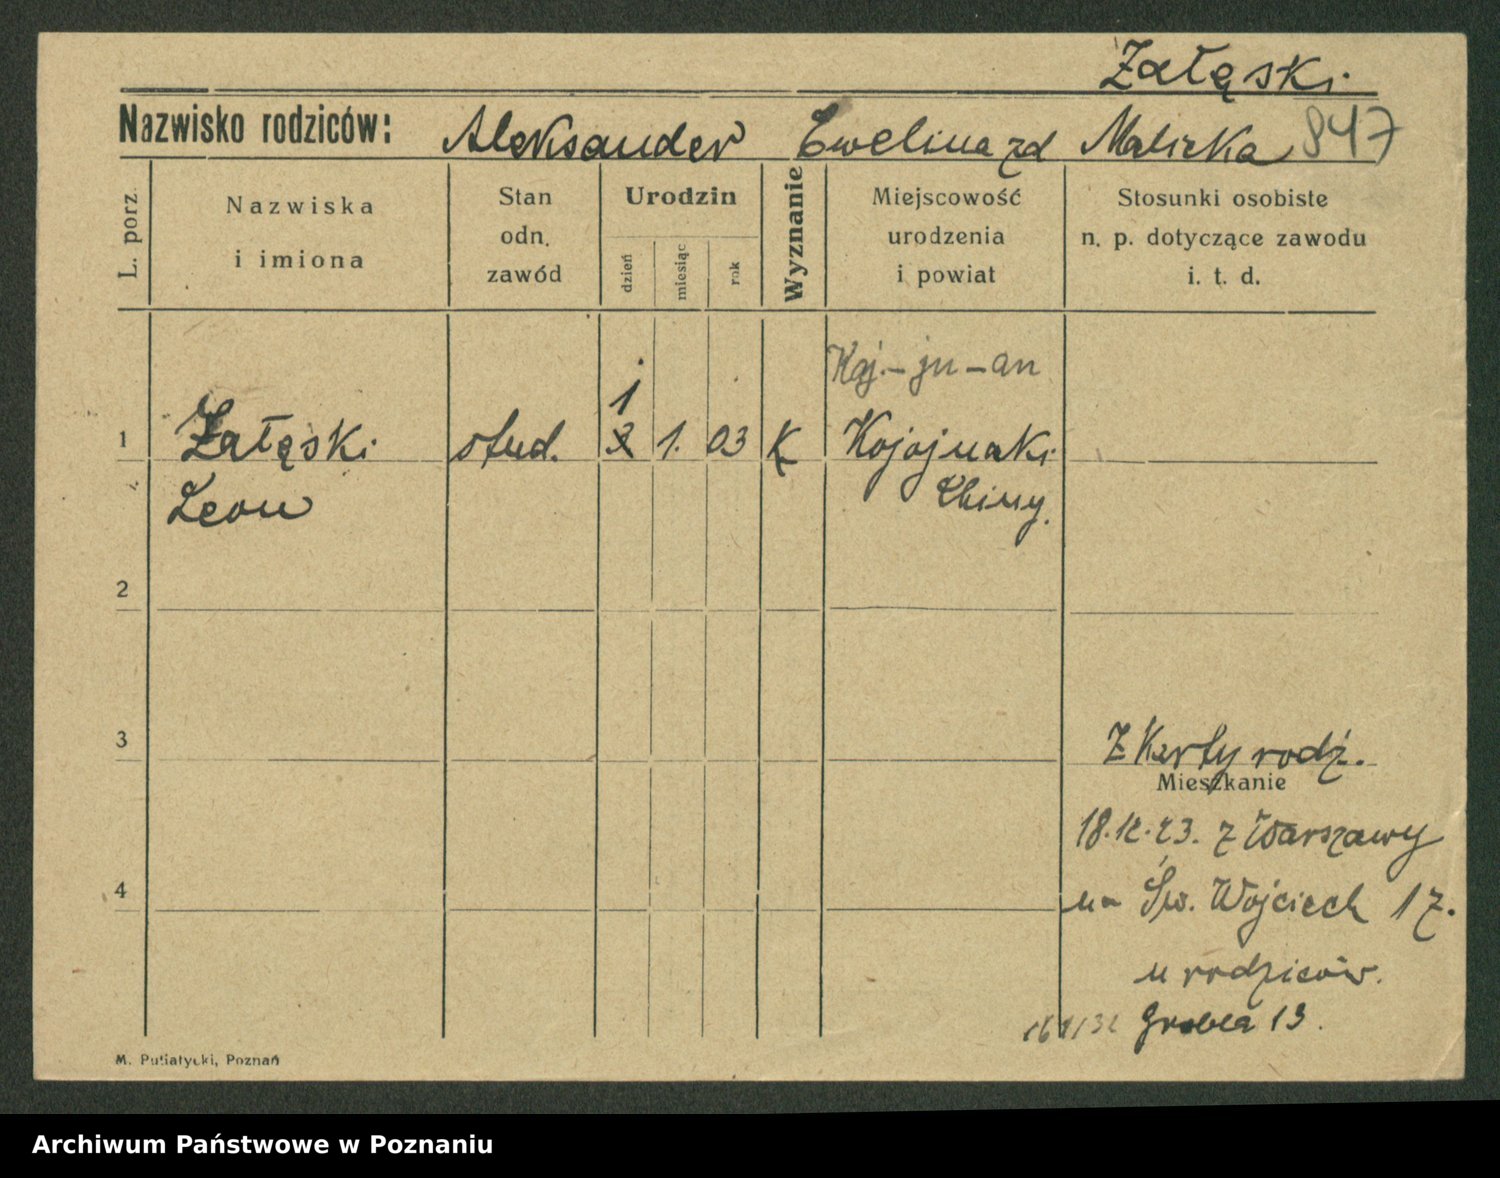 Załęski.
Nazwisko rodziców: Aleksander Ewelina zd Malicka 847
L. porz.
Nazwiska
i imiona
Stan
odn.
zawód
Urodzin
dzień
miesiąc
rok
Wyznanie
Miejscowość
urodzenia
i powiat
Stosunki osobiste
n. p. dotyczące zawodu
i. t. d.
Kaj.-ju-an
1
1 Załęski stud. 2 1. 03 K Kojojuaki
Leon Chiny.
2
3
Z Karty rodz.
Mieszkanie
18.12.23. z Warszawy
4
na Św. Wojciech 17.
u rodziców.
Grobla 13.
M. Putiatycki, Poznań
Archiwum Państwowe w Poznaniu